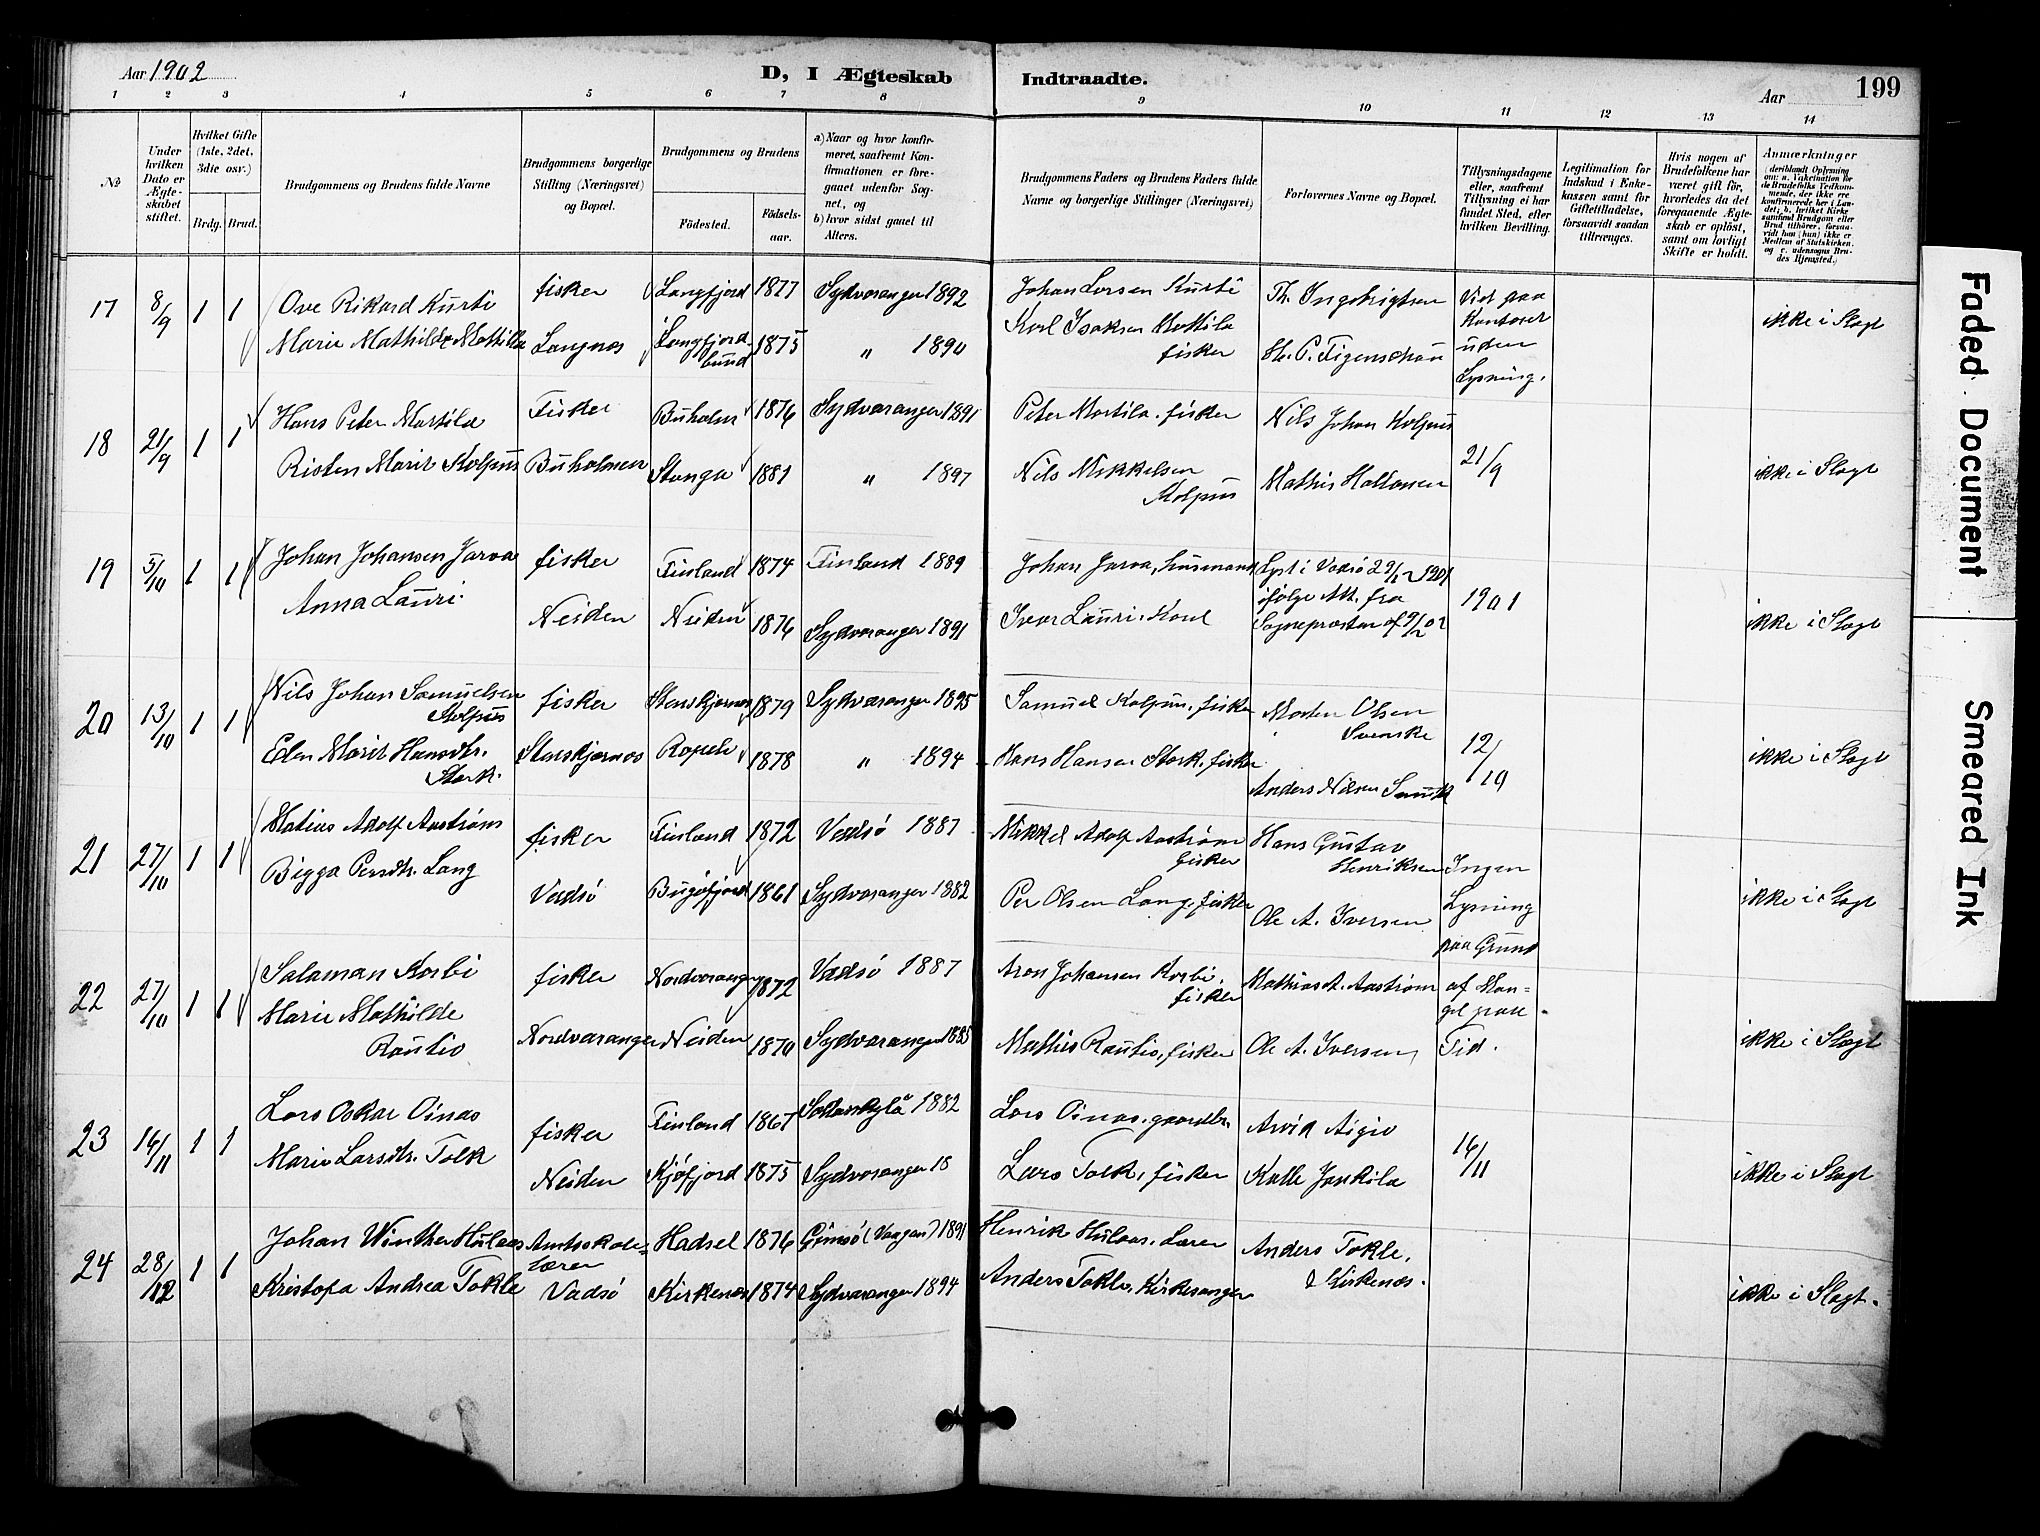 Aar 1902
D, I Ægteskab Indtraadte.
Aar
199
1 2 3 4 5 6 7 8 9 10 11 12 13 14
№
Under hvilken Dato er Ægteskabet stiftet.
Hvilket Gifte (1ste, 2det, 3die osv.)
Brdg. Brud.
Brudgommens og Brudens fulde Navne
Brudgommens borgerlige Stilling (Næringsvei) og Bopæl.
Brudgommens og Brudens
Fødested.
Fødselsaar.
a) Naar og hvor konfirmeret, saafremt Konfirmationen er foregaaet udenfor Sognet, og
b) hvor sidst gaaet til Alters.
Brudgommens Faders og Brudens Faders fulde Navne og borgerlige Stillinger (Næringsvei)
Forlovernes Navne og Bopæl.
Tillysningsdagene eller, saafremt Tillysning ei har fundet Sted, efter hvilken Bevilling.
Legitimation for Indskud i Enkekassen samt for Giftetilladelse, forsaavidt saadan tiltrænges.
Hvis nogen af Brudefolkene har været gift før, hvorledes da det foregaaende Ægteskab er opløst, samt om lovligt Skifte er holdt.
Anmærkninger
17 8/9 1 1 Ove Rikard Kurti fisker Langfjord 1877 Sydvaranger 1892 Johan Larsen Kurti Th. Ingebrigtsen Vid paa Kontoret
Marie Mathilde Mattila Langnes Langfjordbund 1875 " 1890 Karl Isaksen Mattila fisker H. P. Figenschau uden Lysning. ikke i Slægt
18 21/9 1 1 Hans Peter Martila Fisker Buholm 1876 Sydvaranger 1891 Peter Martila. fisker Nils Johan Kolpus
Risten Marit Kolpus Buholmen Stanga 1881 " 1897 Nils Mikkelsen Kolpus Mathis Haltonen 21/9 ikke i Slægt
19 5/10 1 1 Johan Johansen Jarva fisker Finland 1874 Finland 1889 Johan Jarva, husmand Lyst i Vadsø 29/12 1901 ifølge Att. fra
Anna Lauri. Neiden Neiden 1876 Sydvaranger 1891 Ivar Lauri. Sognepræsten af 9/2 02 1901 ikke i Slægt
20 13/10 1 1 Nils Johan Samuelsen Kolpus fisker Stenskjærnes 1879 Sydvaranger 1895 Samuel Kolpus, fisker Morten Olsen Svenske
Elen Marit Hansdtr. Stork. Stenskjærnes Ropelv 1878 " 1894 Hans Hansen Stork, fisker Anders Nilsen 12/10 ikke i Slægt
21 27/10 1 1 Matius Adolf Aastrøm fisker Finland 1872 Vadsø 1887 Mikkel Adolf Aastrøm fisker Hans Gustav Henriksen Ingen
Bigga Persdtr. Lang Vadsø Bugøfjord 1861 Sydvaranger 1882 Per Olsen Lang, fisker Ole A. Iversen Lysning paa Grund ikke i Slægt
22 27/10 1 1 Salaman Korbi fisker Nordvaranger 1872 Vadsø 1887 Aron Johansen Korbi, fisker Mathias A. Aastrøm af Mangel paa
Marie Mathilde Rautio Nordvaranger Neiden 1870 Sydvaranger 1885 Mathis Rautio, fisker Ole A. Iversen Tid. ikke i Slægt
23 16/11 1 1 Lars Oskar Oinas fisker Finland 1867 Sodankylä 1882 Lars Oinas, gaardbr. Arvid Aigio
Marie Larsdtr. Tolk Neiden Kjøfjord 1875 Sydvaranger 18 Lars Tolk, fisker Kalle Jankila 16/11 ikke i Slægt
24 28/12 1 1 Johan Winther Hulaas Amtsskolelærer Hadsel 1876 Gimsø (Vaagan) 1891 Henrik Hulaas, Lærer Anders Tokle,
Kristofa Andrea Tokle Vadsø Kirkenæs 1874 Sydvaranger 1894 Anders Tokle, Kirkesanger Kirkenæs. ikke i Slægt.
Faded Document
Smeared Ink